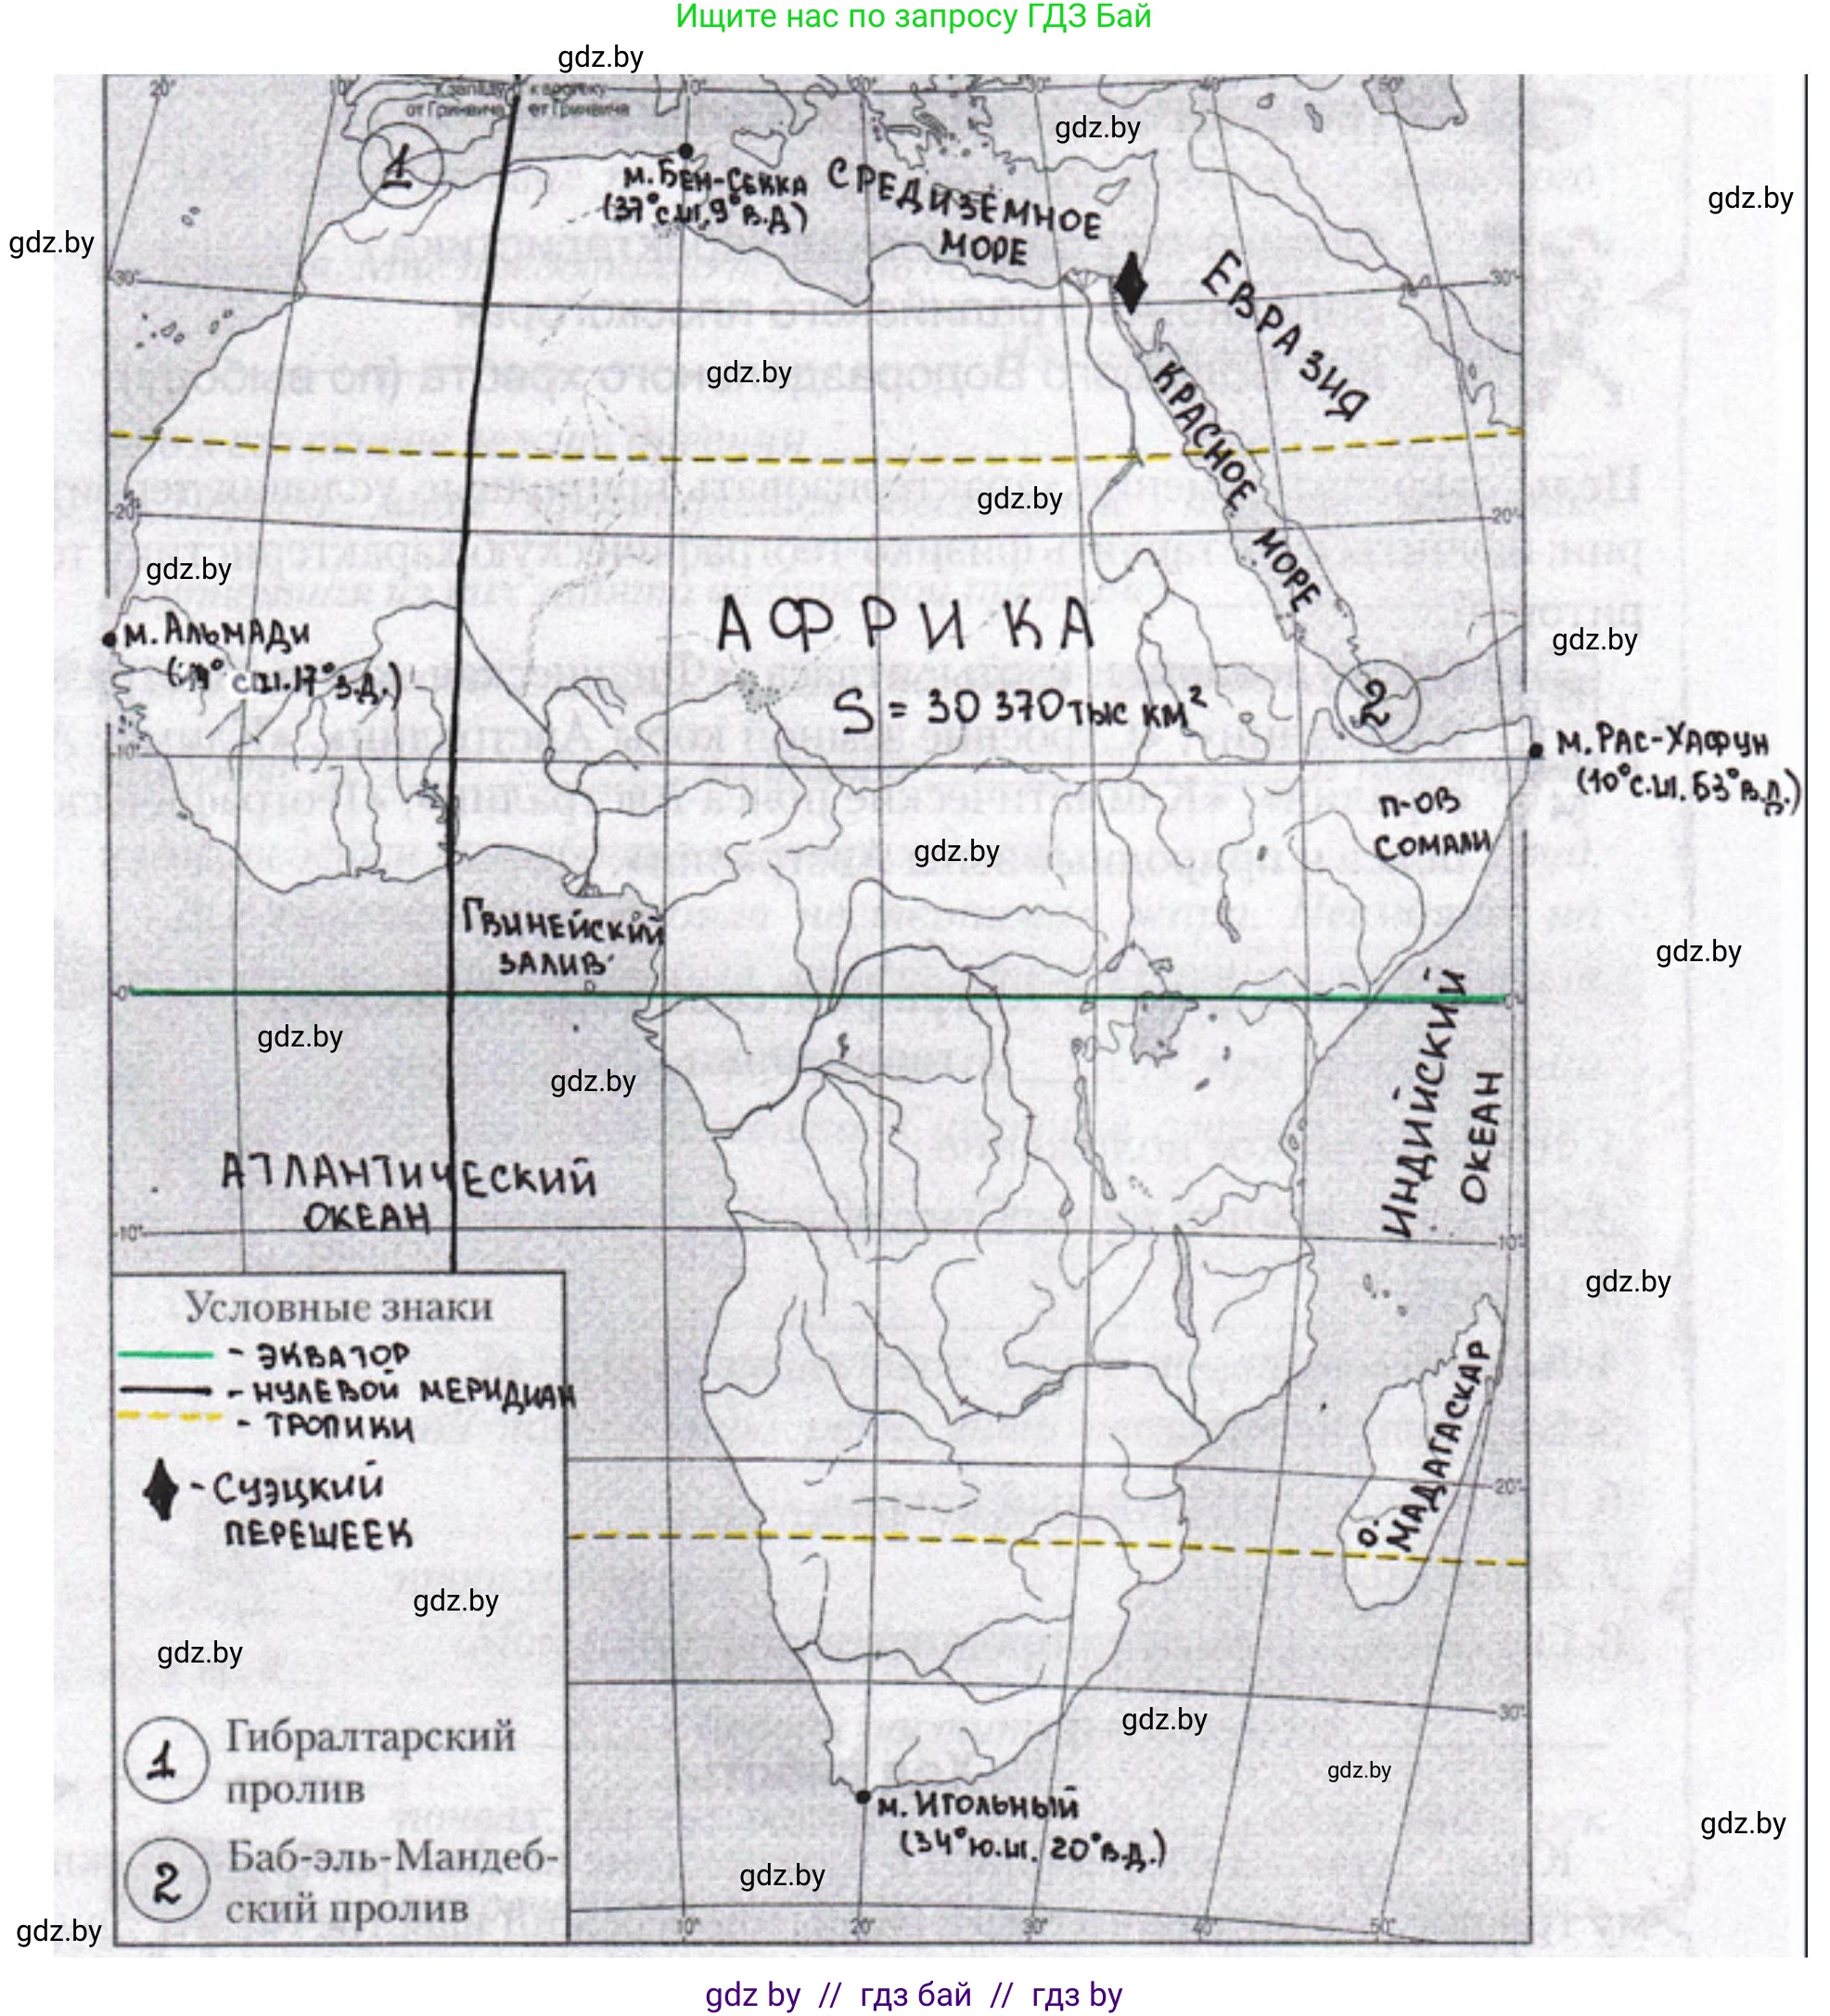 Ищите нас по запросу ГДЗ Бай
gdz.by
20°
10°
К западу
от Гринвича
к востоку
от Гринвича
10°
20°
30°
40°
50°
gdz.by
1
м. Бен-Секка
(37° с.ш, 9° в.д)
СРЕДИЗЕМНОЕ
МОРЕ
gdz.by
gdz.by
30°
30°
ЕВРАЗИЯ
gdz.by
КРАСНОЕ МОРЕ
gdz.by
20°
20°
gdz.by
АФРИКА
м. Альмади
с.ш. 17° з.д.)
gdz.by
S = 30 370 тыс км²
2
м. Рас-Хафун
(10° с.ш. 53° в.д.)
10°
п-ов
Сомали
gdz.by
Гвинейский
залив
gdz.by
0°
0°
gdz.by
gdz.by
ИНДИЙСКИЙ
ОКЕАН
АТЛАНТИЧЕСКИЙ
ОКЕАН
10°
10°
gdz.by
Условные знаки
- ЭКВАТОР
- НУЛЕВОЙ МЕРИДИАН
- ТРОПИКИ
- Суэцкий
перешеек
о. МАДАГАСКАР
20°
gdz.by
gdz.by
30°
gdz.by
1 Гибралтарский
пролив
gdz.by
м. Игольный
(34° ю.ш. 20° в.д.)
gdz.by
2 Баб-эль-Мандеб-
ский пролив
gdz.by
gdz.by
10°
20°
30°
40°
50°
gdz by // гдз бай // гдз by